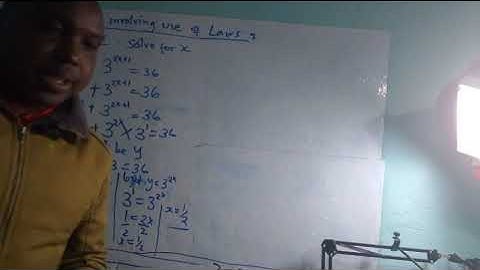 involving use of Laws
Solve for x
3^(2x+1) = 36
+ 3^(2x+1) = 36
+ 3^(2x+1) = 36
+ 3^(2x) × 3^1 = 36
be y
3 = 36
but y = 3^(2x)
3^1 = 3^(2x)
1/2 = 2x/2
x = 1/2
x = 1/2